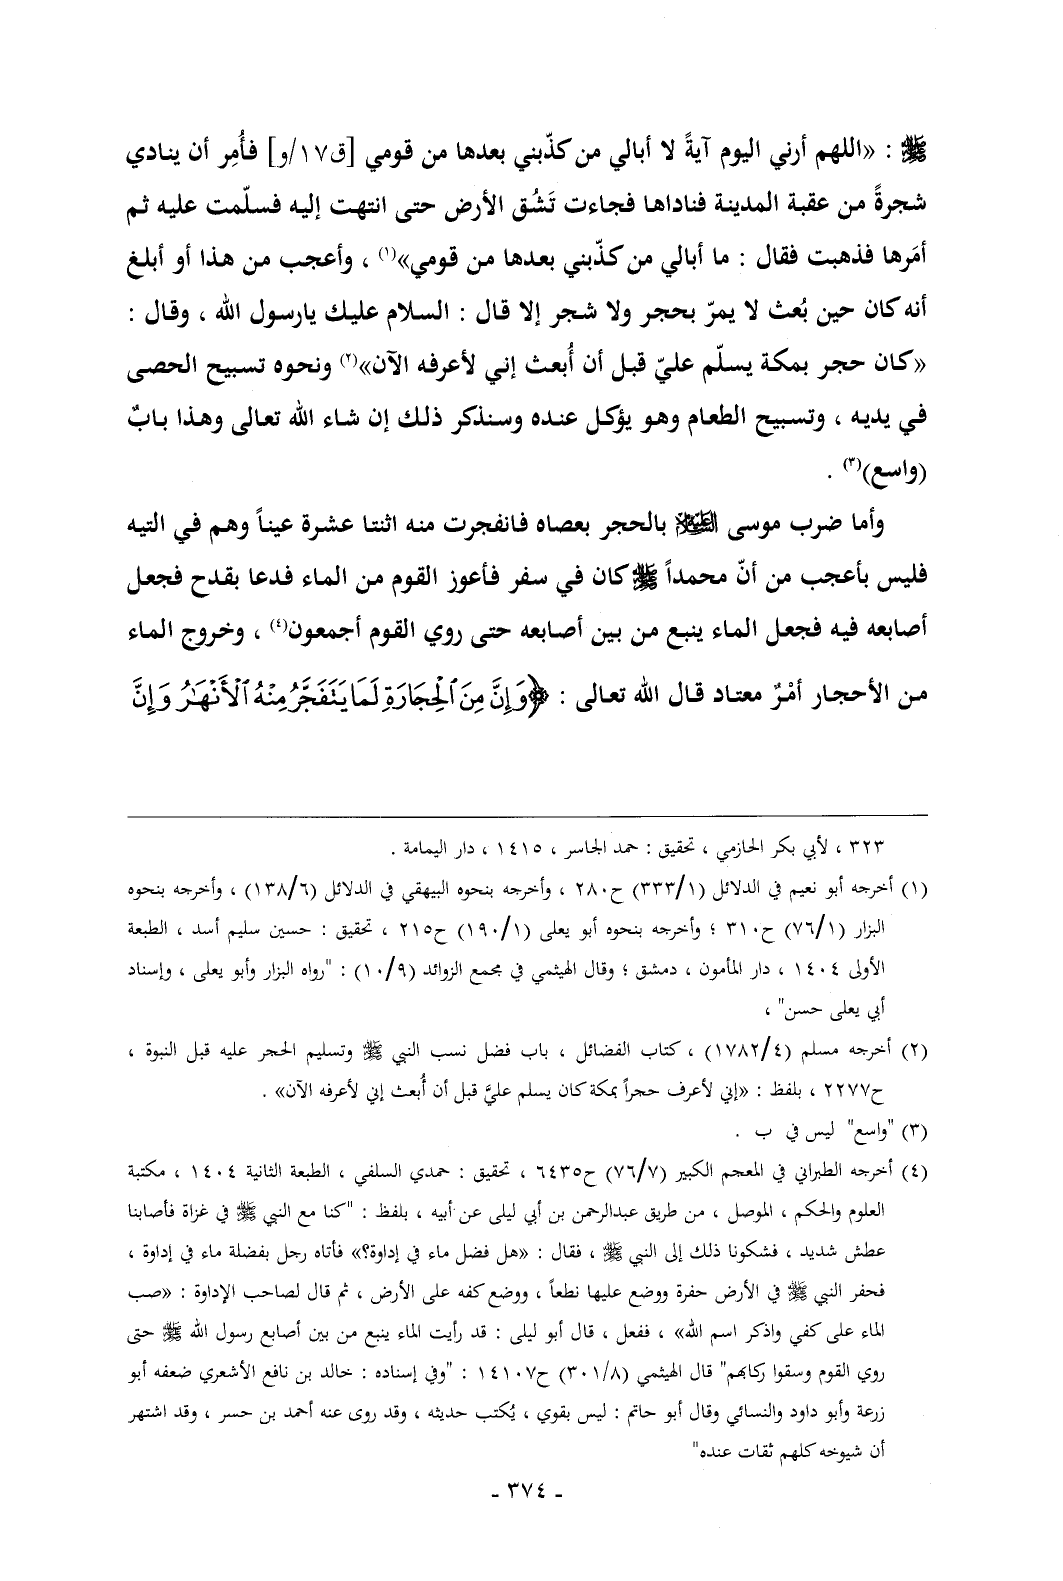 ﷺ : «اللهم أرني اليوم آيةً لا أبالي من كذّبني بعدها من قومي [ق١٧/و] فأُمِر أن ينادي
شجرةً من عقبة المدينة فناداها فجاءت تَشُق الأرض حتى انتهت إليه فسلّمت عليه ثم
أمَرها فذهبت فقال : ما أبالي من كذّبني بعدها من قومي»(١) ، وأعجب من هذا أو أبلغ
أنه كان حين بُعث لا يمرّ بحجر ولا شجر إلا قال : السلام عليك يارسول الله ، وقال :
«كان حجر بمكة يسلّم عليّ قبل أن أُبعث إني لأعرفه الآن»(٢) ونحوه تسبيح الحصى
في يديه ، وتسبيح الطعام وهو يؤكل عنده وسنذكر ذلك إن شاء الله تعالى وهذا بابٌ
(واسع)(٣) .
وأما ضرب موسى العَلَيْهِ السلام بالحجر بعصاه فانفجرت منه اثنتا عشرة عيناً وهم في التيه
فليس بأعجب من أنّ محمداً ﷺ كان في سفر فأعوز القوم من الماء فدعا بقدح فجعل
أصابعه فيه فجعل الماء ينبع من بين أصابعه حتى روي القوم أجمعون(٤) ، وخروج الماء
من الأحجار أمْرٌ معتاد قال الله تعالى : ﴿وَإِنَّ مِنَ ٱلۡحِجَارَةِ لَمَا يَتَفَجَّرُ مِنۡهُ ٱلۡأَنۡهَٰرُ وَإِنَّ
٣٢٣ ، لأبي بكر الحازمي ، تحقيق : حمد الجاسر ، ١٤١٥ ، دار اليمامة .
(١) أخرجه أبو نعيم في الدلائل (٣٣٣/١) ح٢٨٠ ، وأخرجه بنحوه البيهقي في الدلائل (١٣٨/٦) ، وأخرجه بنحوه
البزار (٧٦/١) ح٣١٠ ؛ وأخرجه بنحوه أبو يعلى (١٩٠/١) ح٢١٥ ، تحقيق : حسين سليم أسد ، الطبعة
الأولى ١٤٠٤ ، دار المأمون ، دمشق ؛ وقال الهيثمي في مجمع الزوائد (١٠/٩) : "رواه البزار وأبو يعلى ، وإسناد
أبي يعلى حسن" ،
(٢) أخرجه مسلم (١٧٨٢/٤) ، كتاب الفضائل ، باب فضل نسب النبي ﷺ وتسليم الحجر عليه قبل النبوة ،
ح٢٢٧٧ ، بلفظ : «إني لأعرف حجراً بمكة كان يسلم عليَّ قبل أن أُبعث إني لأعرفه الآن» .
(٣) "واسع" ليس في ب .
(٤) أخرجه الطبراني في المعجم الكبير (٧٦/٧) ح٦٤٣٥ ، تحقيق : حمدي السلفي ، الطبعة الثانية ١٤٠٤ ، مكتبة
العلوم والحكم ، الموصل ، من طريق عبدالرحمن بن أبي ليلى عن أبيه ، بلفظ : "كنا مع النبي ﷺ في غزاة فأصابنا
عطش شديد ، فشكونا ذلك إلى النبي ﷺ ، فقال : «هل فضل ماء في إداوة؟» فأتاه رجل بفضلة ماء في إداوة ،
فحفر النبي ﷺ في الأرض حفرة ووضع عليها نطعاً ، ووضع كفه على الأرض ، ثم قال لصاحب الإداوة : «صب
الماء على كفي واذكر اسم الله» ، ففعل ، قال أبو ليلى : قد رأيت الماء ينبع من بين أصابع رسول الله ﷺ حتى
روي القوم وسقوا ركابهم" قال الهيثمي (٣٠١/٨) ح١٤١٠٧ : "وفي إسناده : خالد بن نافع الأشعري ضعفه أبو
زرعة وأبو داود والنسائي وقال أبو حاتم : ليس بقوي ، يُكتب حديثه ، وقد روى عنه أحمد بن حسر ، وقد اشتهر
أن شيوخه كلهم ثقات عنده"
- ٣٧٤ -